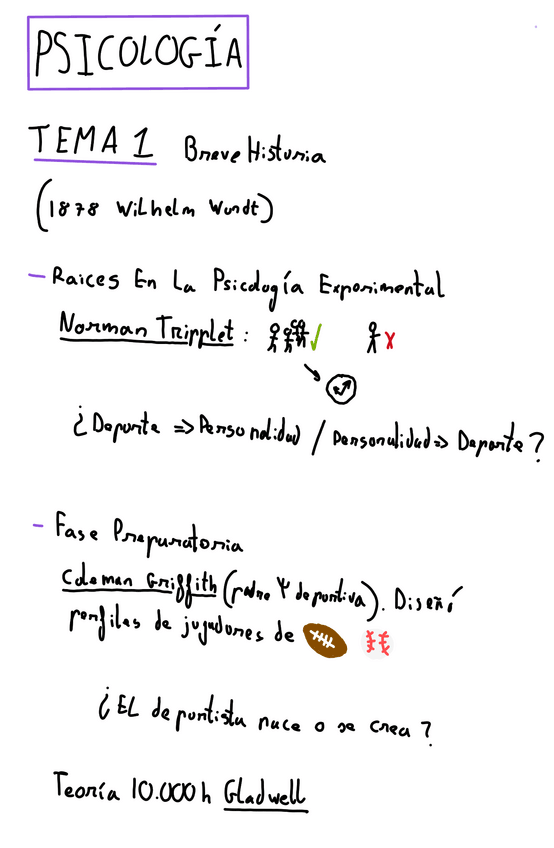 PSICOLOGÍA
TEMA 1 Breve Historia
(1878 Wilhelm Wundt)
- Raices En La Psicología Experimental
Norman Tripplet :
¿Deporte => Personalidad / Personalidad => Deporte?
- Fase Preparatoria
Coleman Griffith (padre Ψ deportiva). Diseñó
perfiles de jugadores de
¿EL deportista nace o se crea?
Teoría 10.000h Gladwell